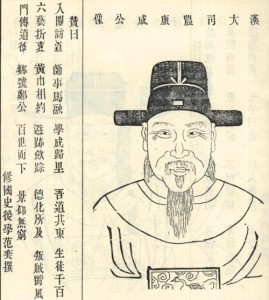 漢大司農康成公像
贊曰
入關訪道 師事馬融 學成歸里 吾道其東 生徒千百
六藝折衷 黃巾相約 跡斂踪 德化所及 叛賊風
門傳道德 鄉號鄭公 百世而下 景仰無窮
修國史後學范奕撰